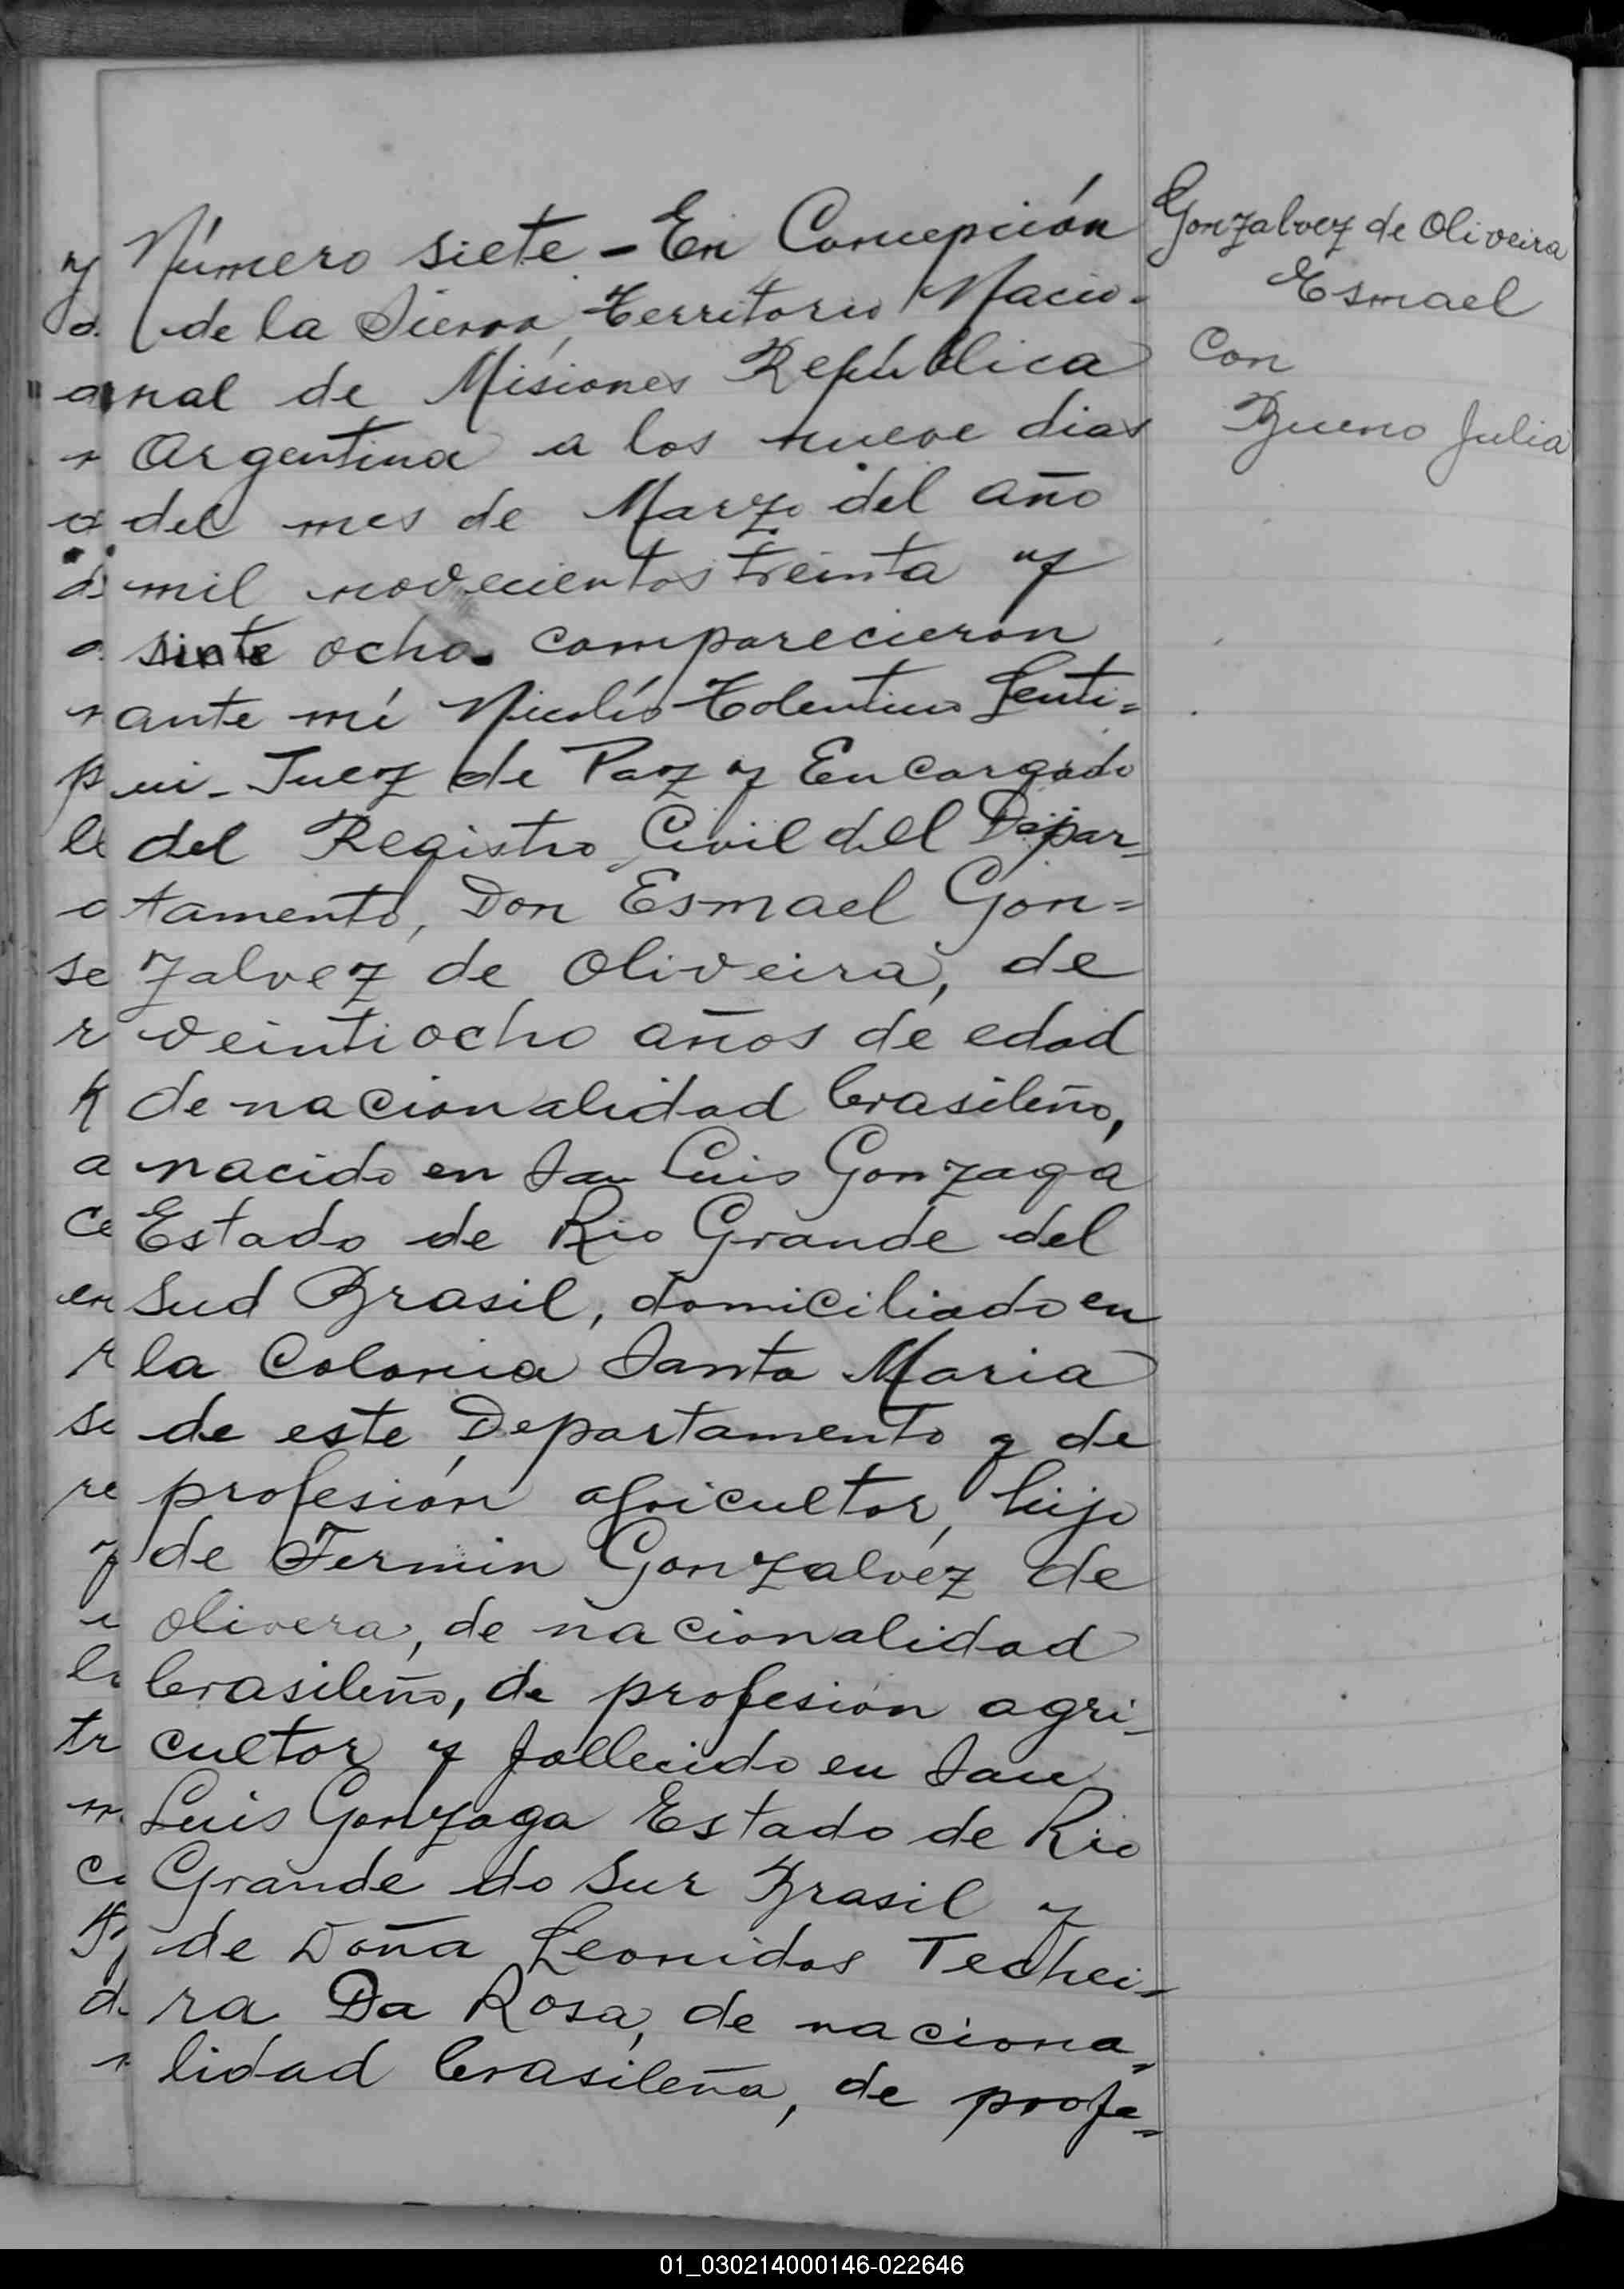 Número siete - En Concepción
de la Sierra, Territorio Nacio-
nal de Misiones República
Argentina a los nueve dias
del mes de Marzo del año
mil novecientos treinta y
siete ocho comparecieron
ante mí Nicolás Tolentino
Juez de Paz y Encargado
del Registro Civil del Depar-
tamento, Don Esmael Gon=
zalvez de Oliveira, de
veintiocho años de edad
de nacionalidad brasileño,
nacido en San Luis Gonzaga
Estado de Rio Grande del
Sud Brasil, domiciliado en
la Colonia Santa Maria
de este Departamento y de
profesión agricultor, hijo
de Fermin Gonzalvez de
Olivera, de nacionalidad
brasileño, de profesión agri-
cultor y fallecido en San
Luis Gonzaga Estado de Rio
Grande do Sur Brasil y
de Doña Leonidas Techei-
ra Da Rosa, de naciona-
lidad brasileña, de profe=
Gonzalvez de Oliveira
Esmael
Con
Bueno Julia
01_030214000146-022646